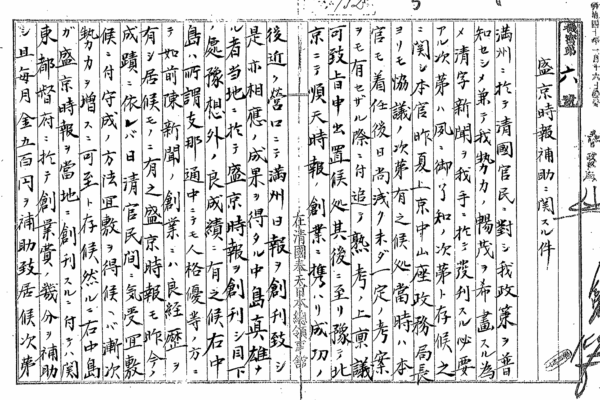 機密第六號
盛京時報補助ニ關スル件
滿州ニ於テ清國官民ニ對シ我政策ヲ普
知セシメ兼テ我勢力ノ暢茂ヲ希畫スル為
メ清字新聞ヲ我手ニ於テ發刊スルノ必要
アル次第ハ夙ニ御了知ノ次第ト存候之
ニ關シ本官昨夏上京中山座政務局長
ヨリモ協議ノ次第有之候處當時ハ本
官モ着任後日尚浅ク未ダ一定ノ考案
ヲモ有セザル際ニ付追テ熟考ノ上稟議
可致旨申出置候処其後ニ至リ豫テ北
京ニテ順天時報ノ創業ニ携ハリ成功ノ
後近ク營口ニテ滿州日報ヲ創刊致シ
是亦相應ノ成果ヲ得タル中島真雄ナ
ル者当地ニ於テ盛京時報ヲ創刊シ目下
ノ處豫想外ノ良成績ニ有之候右中
島ハ所謂支那通中ニテモ人格優等ノ方ニ
テ如前陳新聞ノ創業ニハ良経歴ヲ
有シ居候モノニ有之盛京時報モ昨今ノ
成蹟ニ依レバ日清官民間ニ氣受宜敷
候ニ付守成ノ方法宜敷ヲ得候ハバ漸次
勢力ヲ増スニ可至ト存候然ルニ右中島
ガ盛京時報ヲ當地ニ創刊スルニ付テハ関
東都督府ニ於テ創業費ノ幾分ヲ補助
シ且毎月金五百円ヲ補助致居候次第
在清國奉天日本總領事館